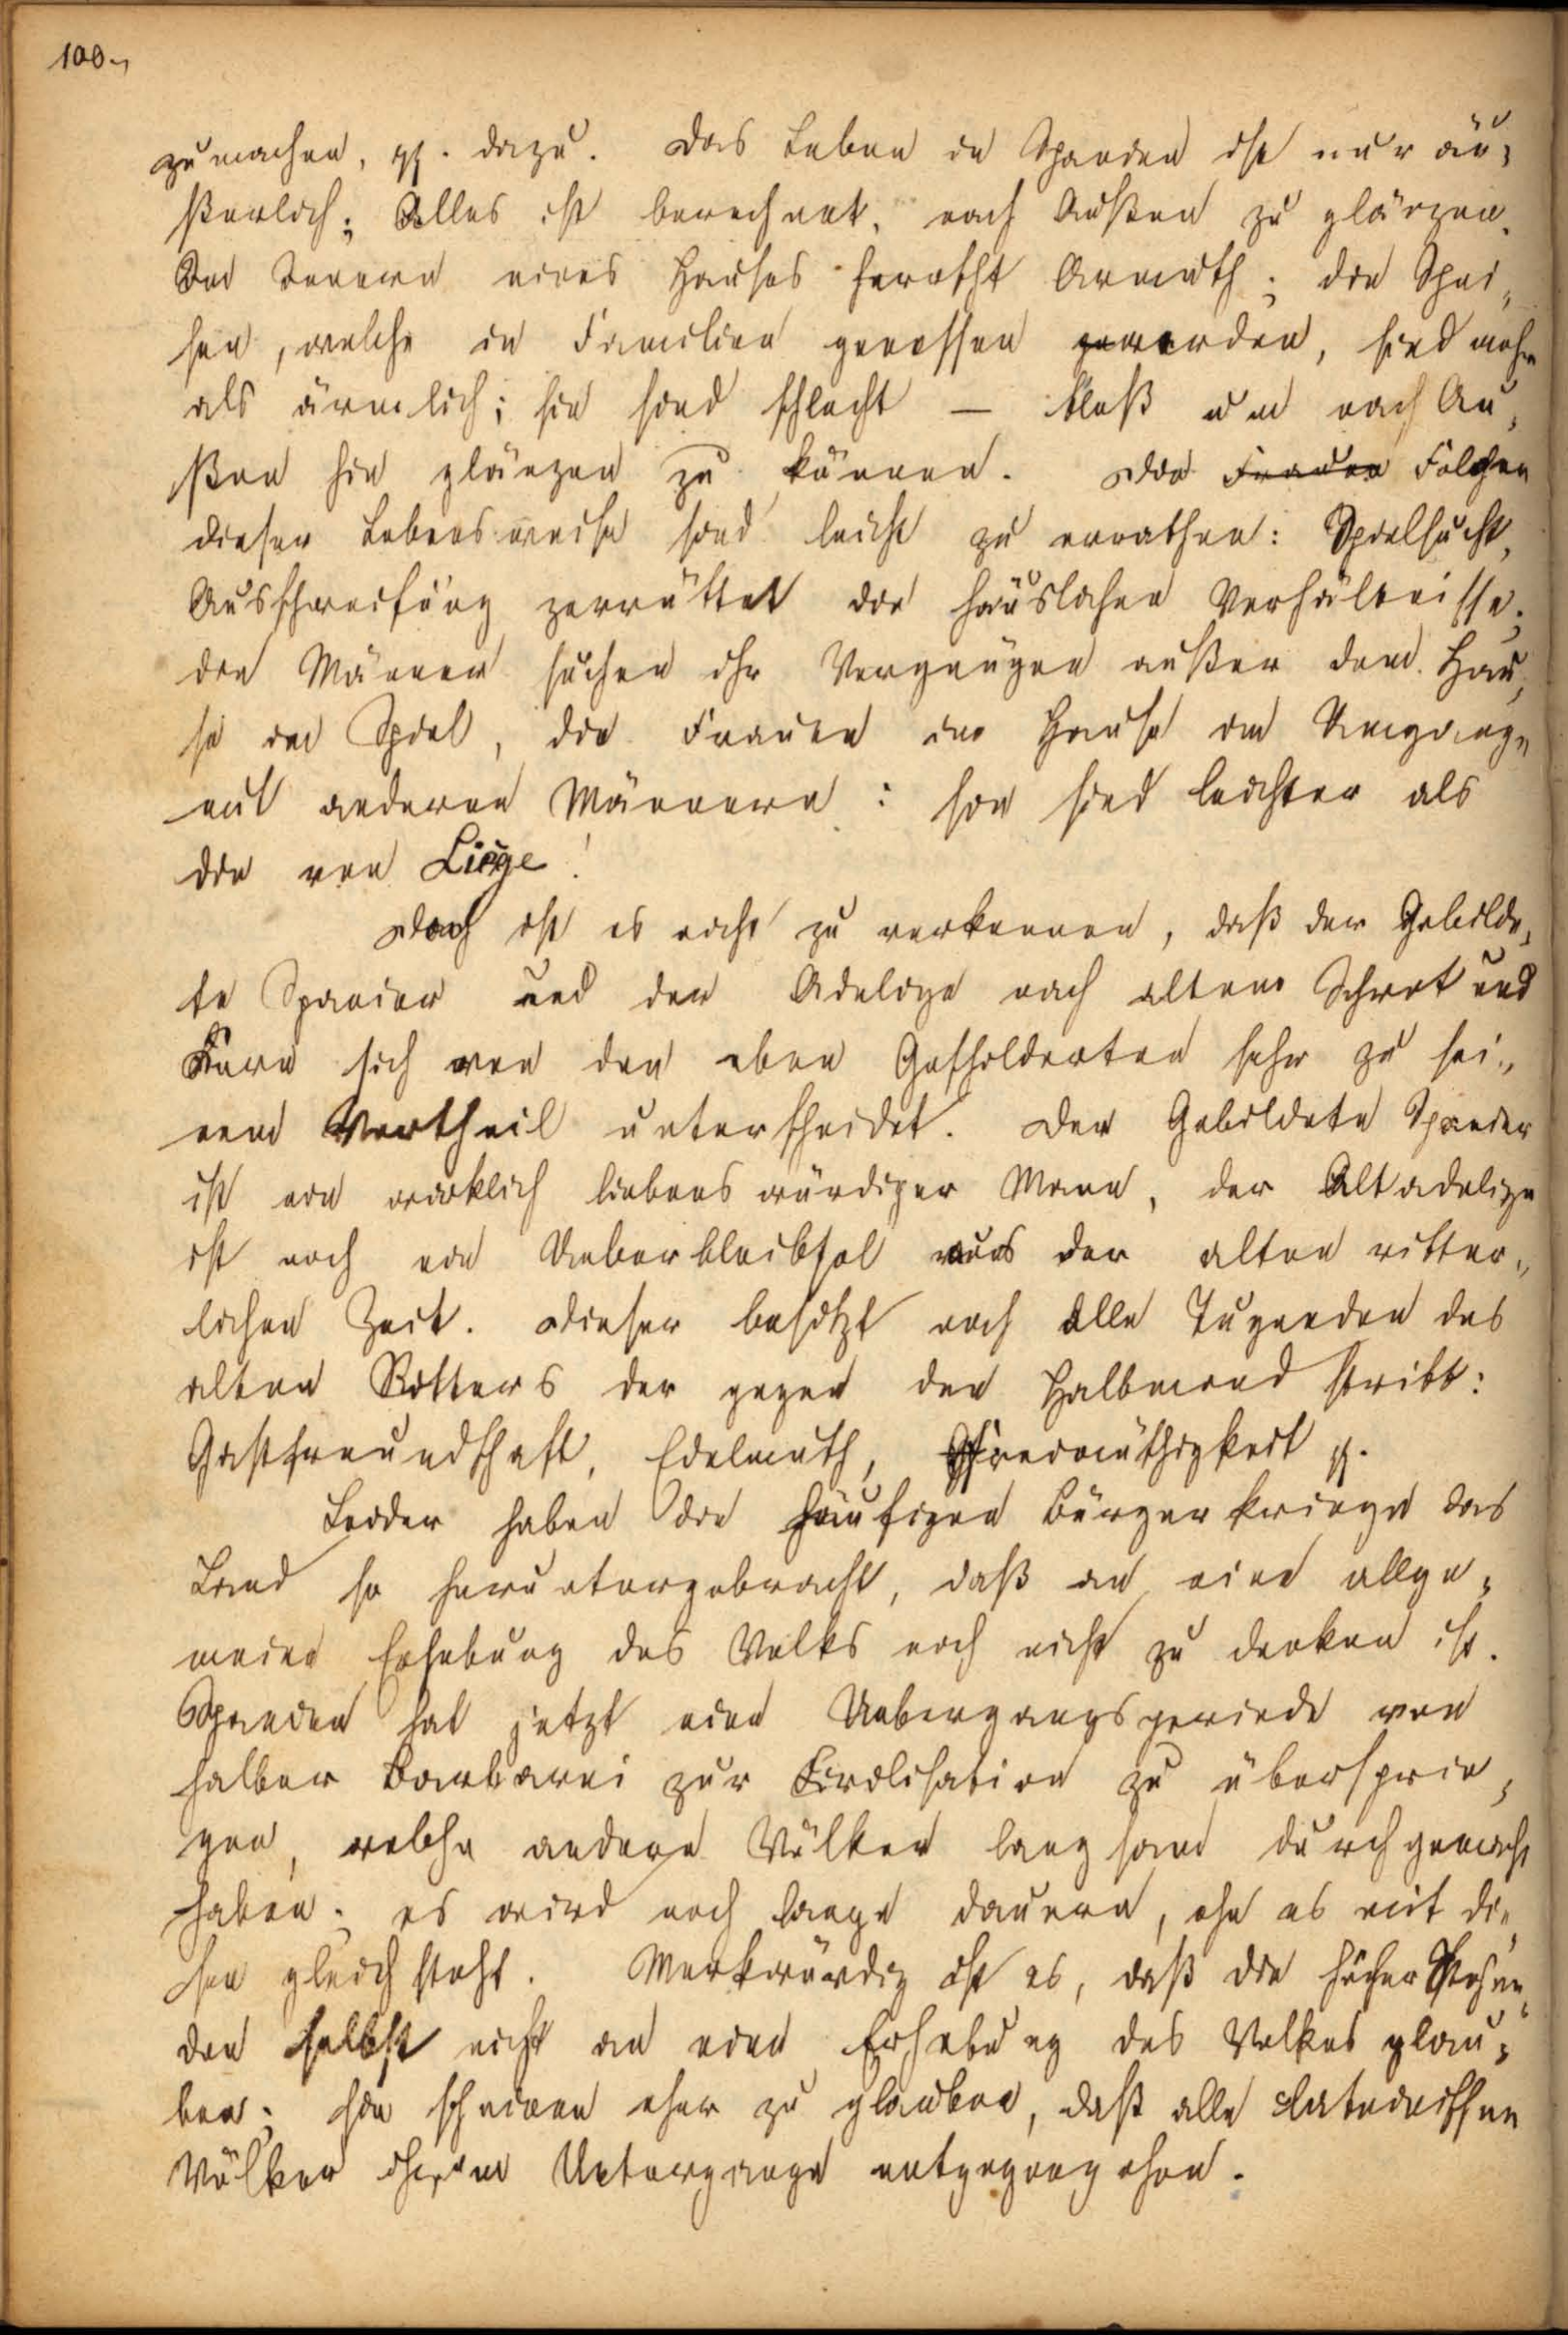 100.
zu machen, pp. dazu. Das Leben in Spanien ist nur äu-
ßerlich; Alles ist berechnet, nach Außen zu glänzen.
Im Innern eines Hauses herrscht Armuth; die Spei-
sen, welche in Familien genossen werden, sind mehr
als ärmlich; sie sind schlecht — bloß um nach Au-
ßen hin glänzen zu können. Die Frauen Folgen
dieser Lebensweise sind leicht zu errathen: Spielsucht,
Ausschweifung zerrüttet die häuslichen Verhältnisse;
die Männer suchen ihr Vergnügen außer dem Hau-
se im Spiel, die Frauen im Hause im Umgange
mit anderen Männern: sie sind leichter als
die von Liège!
Doch ist es nicht zu verkennen, daß der Gebilde-
te Spanier und der Adelige nach altem Schrot und
Korn sich von den eben Geschilderten sehr zu sei-
nem Vortheil unterscheidet. Der Gebildete Spanier
ist ein wirklich liebenswürdiger Mann, der Altadelige
ist noch ein Ueberbleibsel aus der alten ritter-
lichen Zeit. Dieser besitzt noch alle Tugenden des
alten Ritters der gegen den Halbmond stritt:
Gastfreundschaft, Edelmuth, Freimüthigkeit pp.
Leider haben die häufigen Bürgerkriege das
Land so heruntergebracht, daß an eine allge-
meine Erhebung des Volks noch nicht zu denken ist.
Spanien hat jetzt eine Uebergangsperiode von
halber Barbarei zur Civilisation zu übersprin-
gen, welche andere Völker langsam durchgemacht
haben; es wird noch lange dauern, ehe es mit die-
sen gleich steht. Merkwürdig ist es, daß die höher Stehen-
den selbst nicht an eine Erhebung des Volkes glau-
ben; sie scheinen eher zu glauben, daß alle lateinischen
Völker ihrem Untergange entgegengehen.